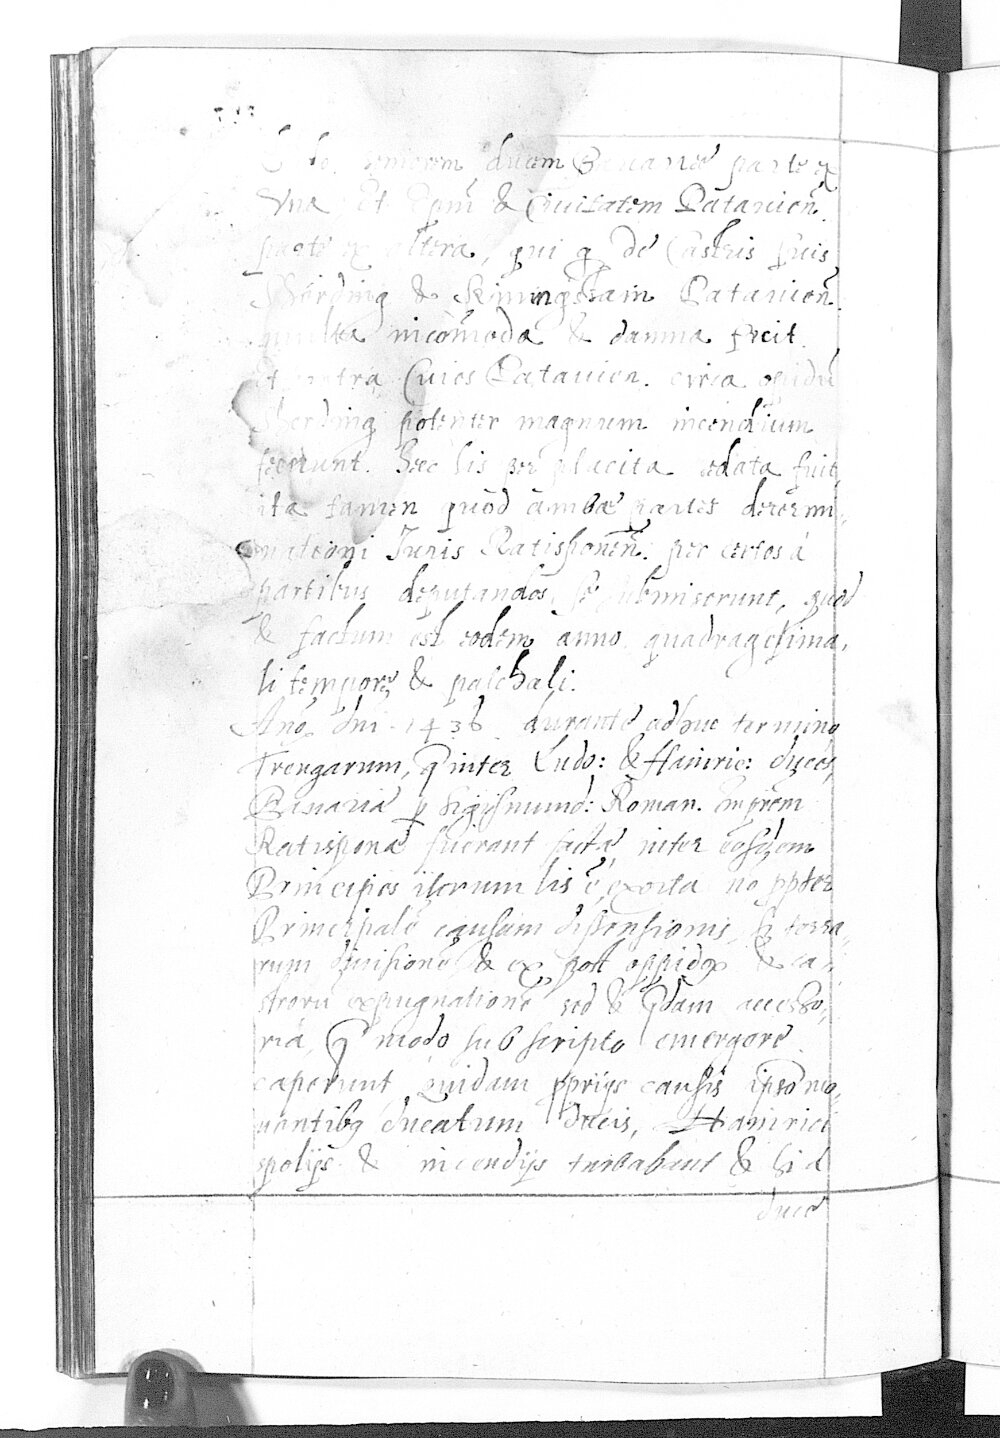 seniorem ducem Bauariæ parte ex
Vna et Epm̄ & Ciuitatem Patauien̄.
parte ex altera, qui q̨ de Castris suis
Scherding & Patauien̄.
multa incom̄oda & damna fecit.
et contra Ciues Patauien. circa oppidū
Scherding potenter magnum incendium
fecerunt. Hæc lis per placita sedata fuit,
ita tamen quod ambæ partes determi-
nationi Iuris Ratisponen̄. per certos á
partibus deputandos, se submiserunt, quod
& factum est eodem anno quadragesima-
li tempore & paschali.
Anō. dni. 1436. durante adhuc termino
Treugarum, q̄ inter Ludo: & Hainric: duces
Bauariæ p Sigismund: Roman. Imprēm
Ratisponæ fuerant factæ, inter eosdem
Principes iterum lis ē exorta no ppter
Principalē causam dissensionis, s. terra-
rum diuisionē & ex post oppidoꝝ & ca-
strorū expugnationē sed & q̄dam accesso-
ria, q̄ modo sub scripto emergere
cæperunt, Quidam pprijs causis ipso mo-
uentibꝯ ducatum ducis, Hainrici
spolijs & incendijs turbabant & hi d
duce